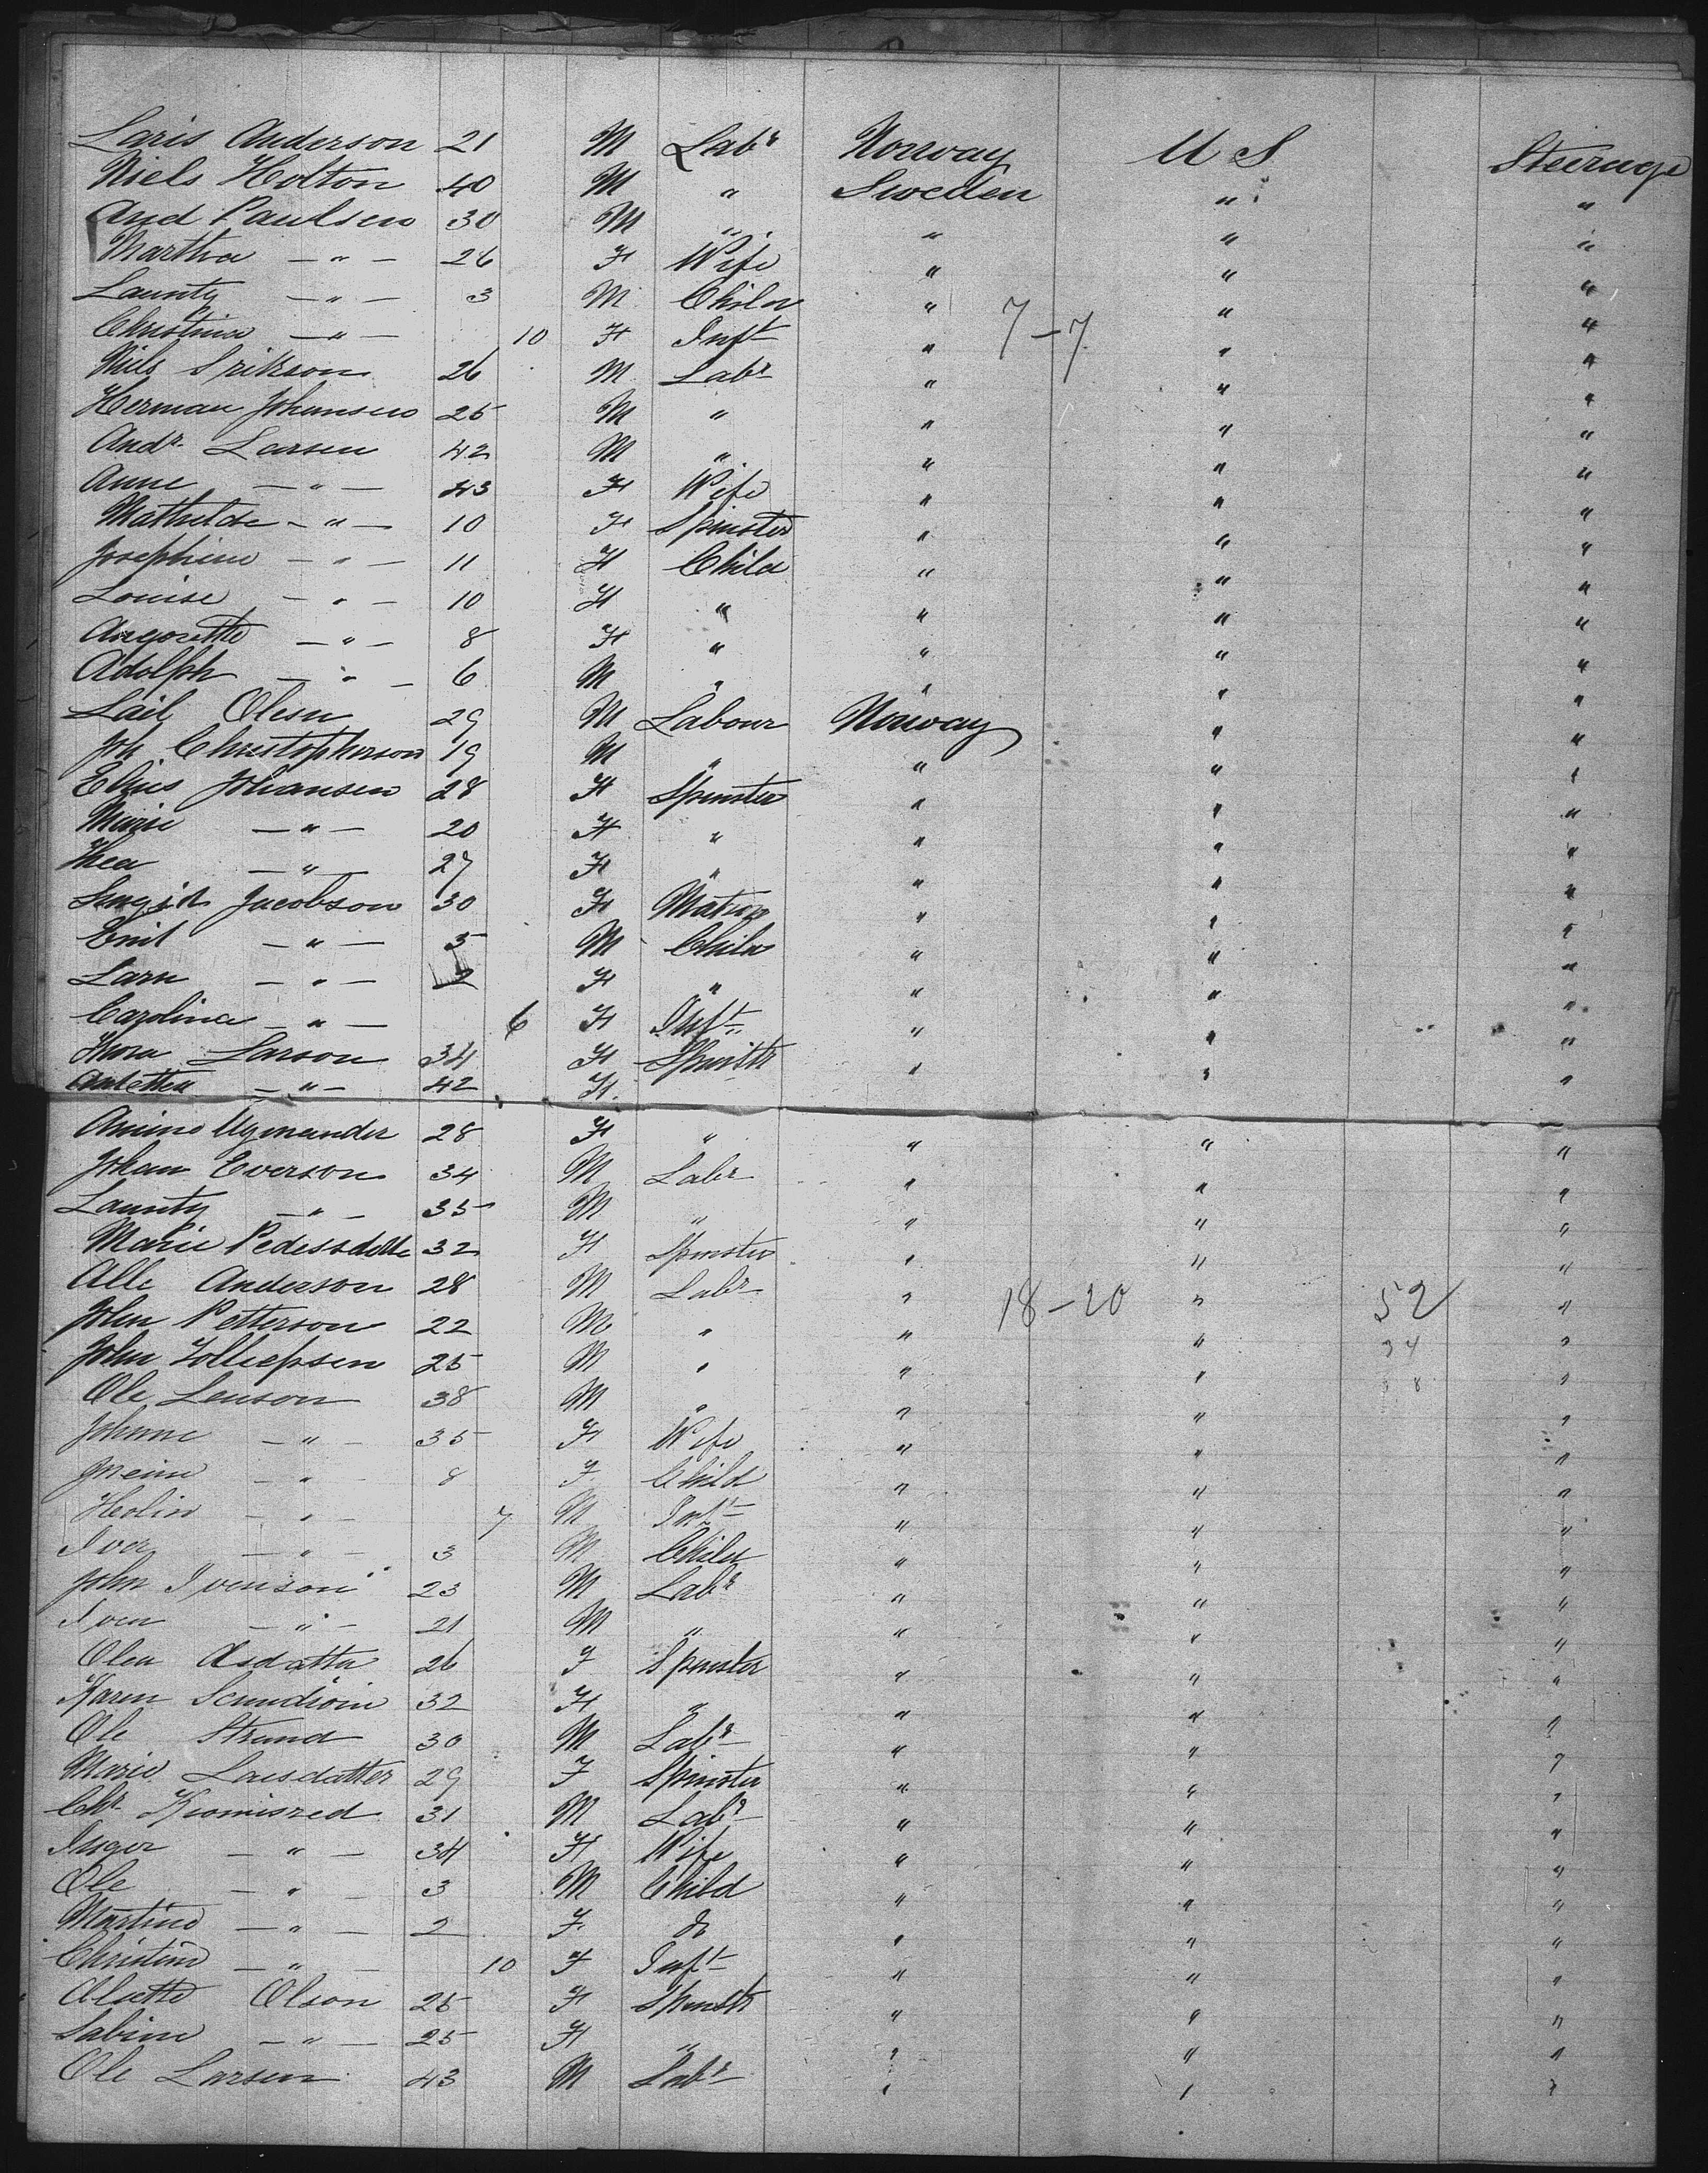 Laris Anderson 21 M Labr Norway U S Steerage
Niels Holton 40 M " Sweden " "
And Paulsen 30 M " " " "
Martha — " — 26 F Wife " " "
Launty — " — 3 M Child " " "
Christina — " — 10 F Inft " 7-7 " "
Niels Srikson 26 M Labr " " "
Herman Johansen 25 M " " " "
Andr. Larsen 42 M " " " "
Anne — " — 43 F Wife " " "
Mathilde — " — 10 F Spinster " " "
Josephine — " — 11 F Child " " "
Louise — " — 10 F " " " "
— " — 8 F " " " "
Adolph — " — 6 M " " " "
Lail Olesn 29 M Labour Norway " "
Joh Christopherson 19 M " " " "
Elias Johansen 28 F Spinster " " "
Marie — " — 20 F " " " "
Thea — " — 27 F " " " "
Jacobson 30 F Matron " " "
Emil — " — 5 M Child " " "
Larn — " — 2 F " " " "
Carolina — " — 6 F Inft " " "
Thora Larson 34 F Spinstr " " "
— " — 42 F
28 F " " " "
Johan Everson 34 M Labr " " "
Launty — " — 35 M " " " "
Marie 32 F Spinster " " "
Alle Anderson 28 M Labr " 18-20 " 52 "
John Petterson 22 M " " " 34 "
John Tollefsen 25 M " " " 8 "
Ole Lenson 38 M " " " "
Johanne — " — 35 F Wife " " "
— " — 8 F Child " " "
Heolin — " — 7 M Inft " " "
Iver — " — 3 M Child " " "
John Ivenson 23 M Labr " " "
Iven — " — 21 M " " " "
Olea Asdatter 26 F Spinster " " "
Karen 32 F " " " "
Ole Strand 30 M Labr " " "
Marie Laisdatter 29 F Spinster " " "
Chr. Kromisred 31 M Labr " " "
Inger — " — 34 F Wife " " "
Ole — " — 3 M Child " " "
Martine — " — 2 F do " " "
Christine — " — 10 F Inft " " "
Alsette Olson 25 F Spinstr " " "
Sabine — " — 25 F " " " "
Ole Larsen 43 M Labr " " "